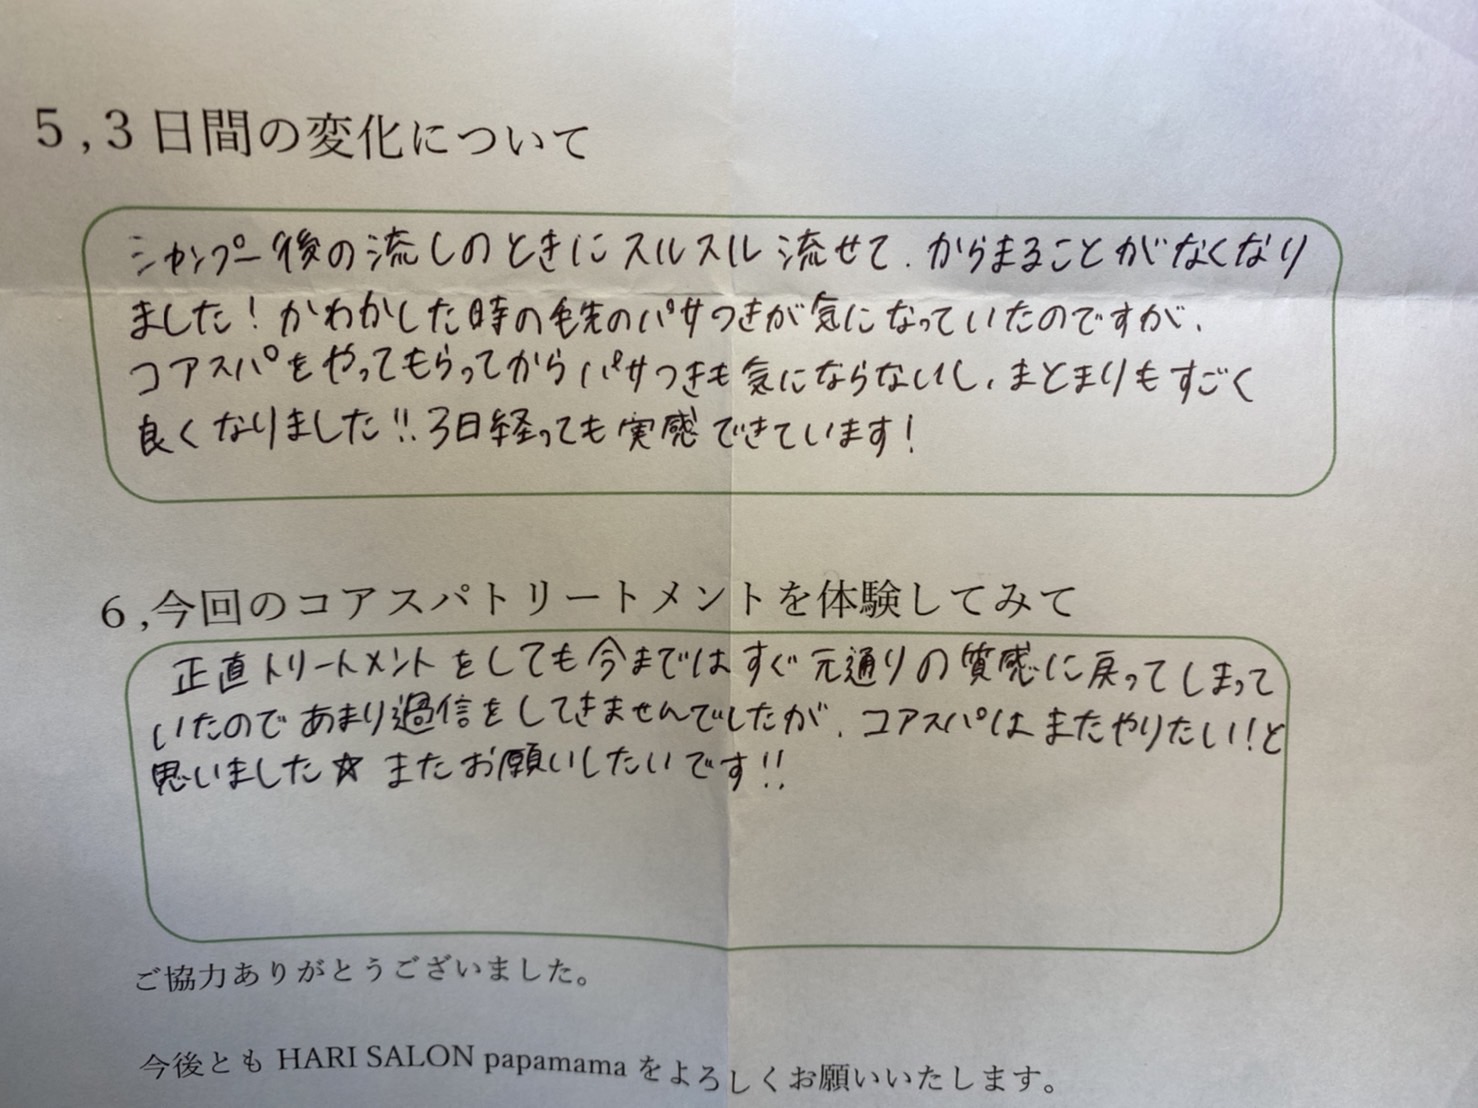 5,3日間の変化について
シャンプー後の流しのときにスルスル流せて、からまることがなくなり
ました!かわかした時の毛先のパサつきが気になっていたのですが、
コアスパをやってもらってからパサつきも気にならないし、まとまりもすごく
良くなりました!!3日経っても実感できています!
6,今回のコアスパトリートメントを体験してみて
正直トリートメントをしても今まではすぐ元通りの質感に戻ってしまって
いたのであまり過信をしてきませんでしたが、コアスパはまたやりたい!と
思いました☆またお願いしたいです!!
ご協力ありがとうございました。
今後とも HARI SALON papamama をよろしくお願いいたします。